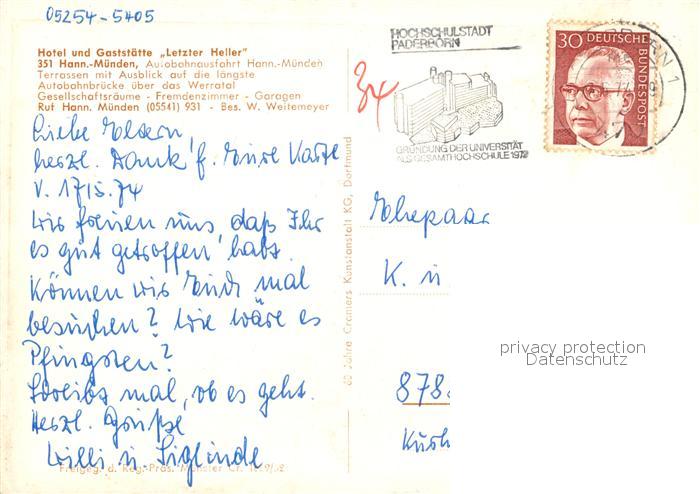 05254-5405
Hotel und Gaststätte „Letzter Heller"
351 Hann.-Münden, Autobahnausfahrt Hann.-Münden
Terrassen mit Ausblick auf die längste
Autobahnbrücke über das Werratal
Gesellschaftsräume - Fremdenzimmer - Garagen
Ruf Hann. Münden (05541) 931 - Bes. W. Weitemeyer
Liebe Eltern,
herzl. Dank f. Eure Karte
v. 17.5.74
Wir freuen uns, daß Ihr
es gut getroffen habt.
Können wir Euch mal
besuchen? Wie wäre es
Pfingsten?
Schreibt mal, ob es geht.
Herzl. Grüße
Willi u. Siglinde
Freigeg. d. Reg.-Präs. Münster
60 Jahre Cramers Kunstanstalt KG, Dortmund
HOCHSCHULSTADT
PADERBORN
GRÜNDUNG DER UNIVERSITÄT
ALS GESAMTHOCHSCHULE 1972
30 DEUTSCHE
BUNDESPOST
Ehepaar
K. u
878
privacy protection
Datenschutz